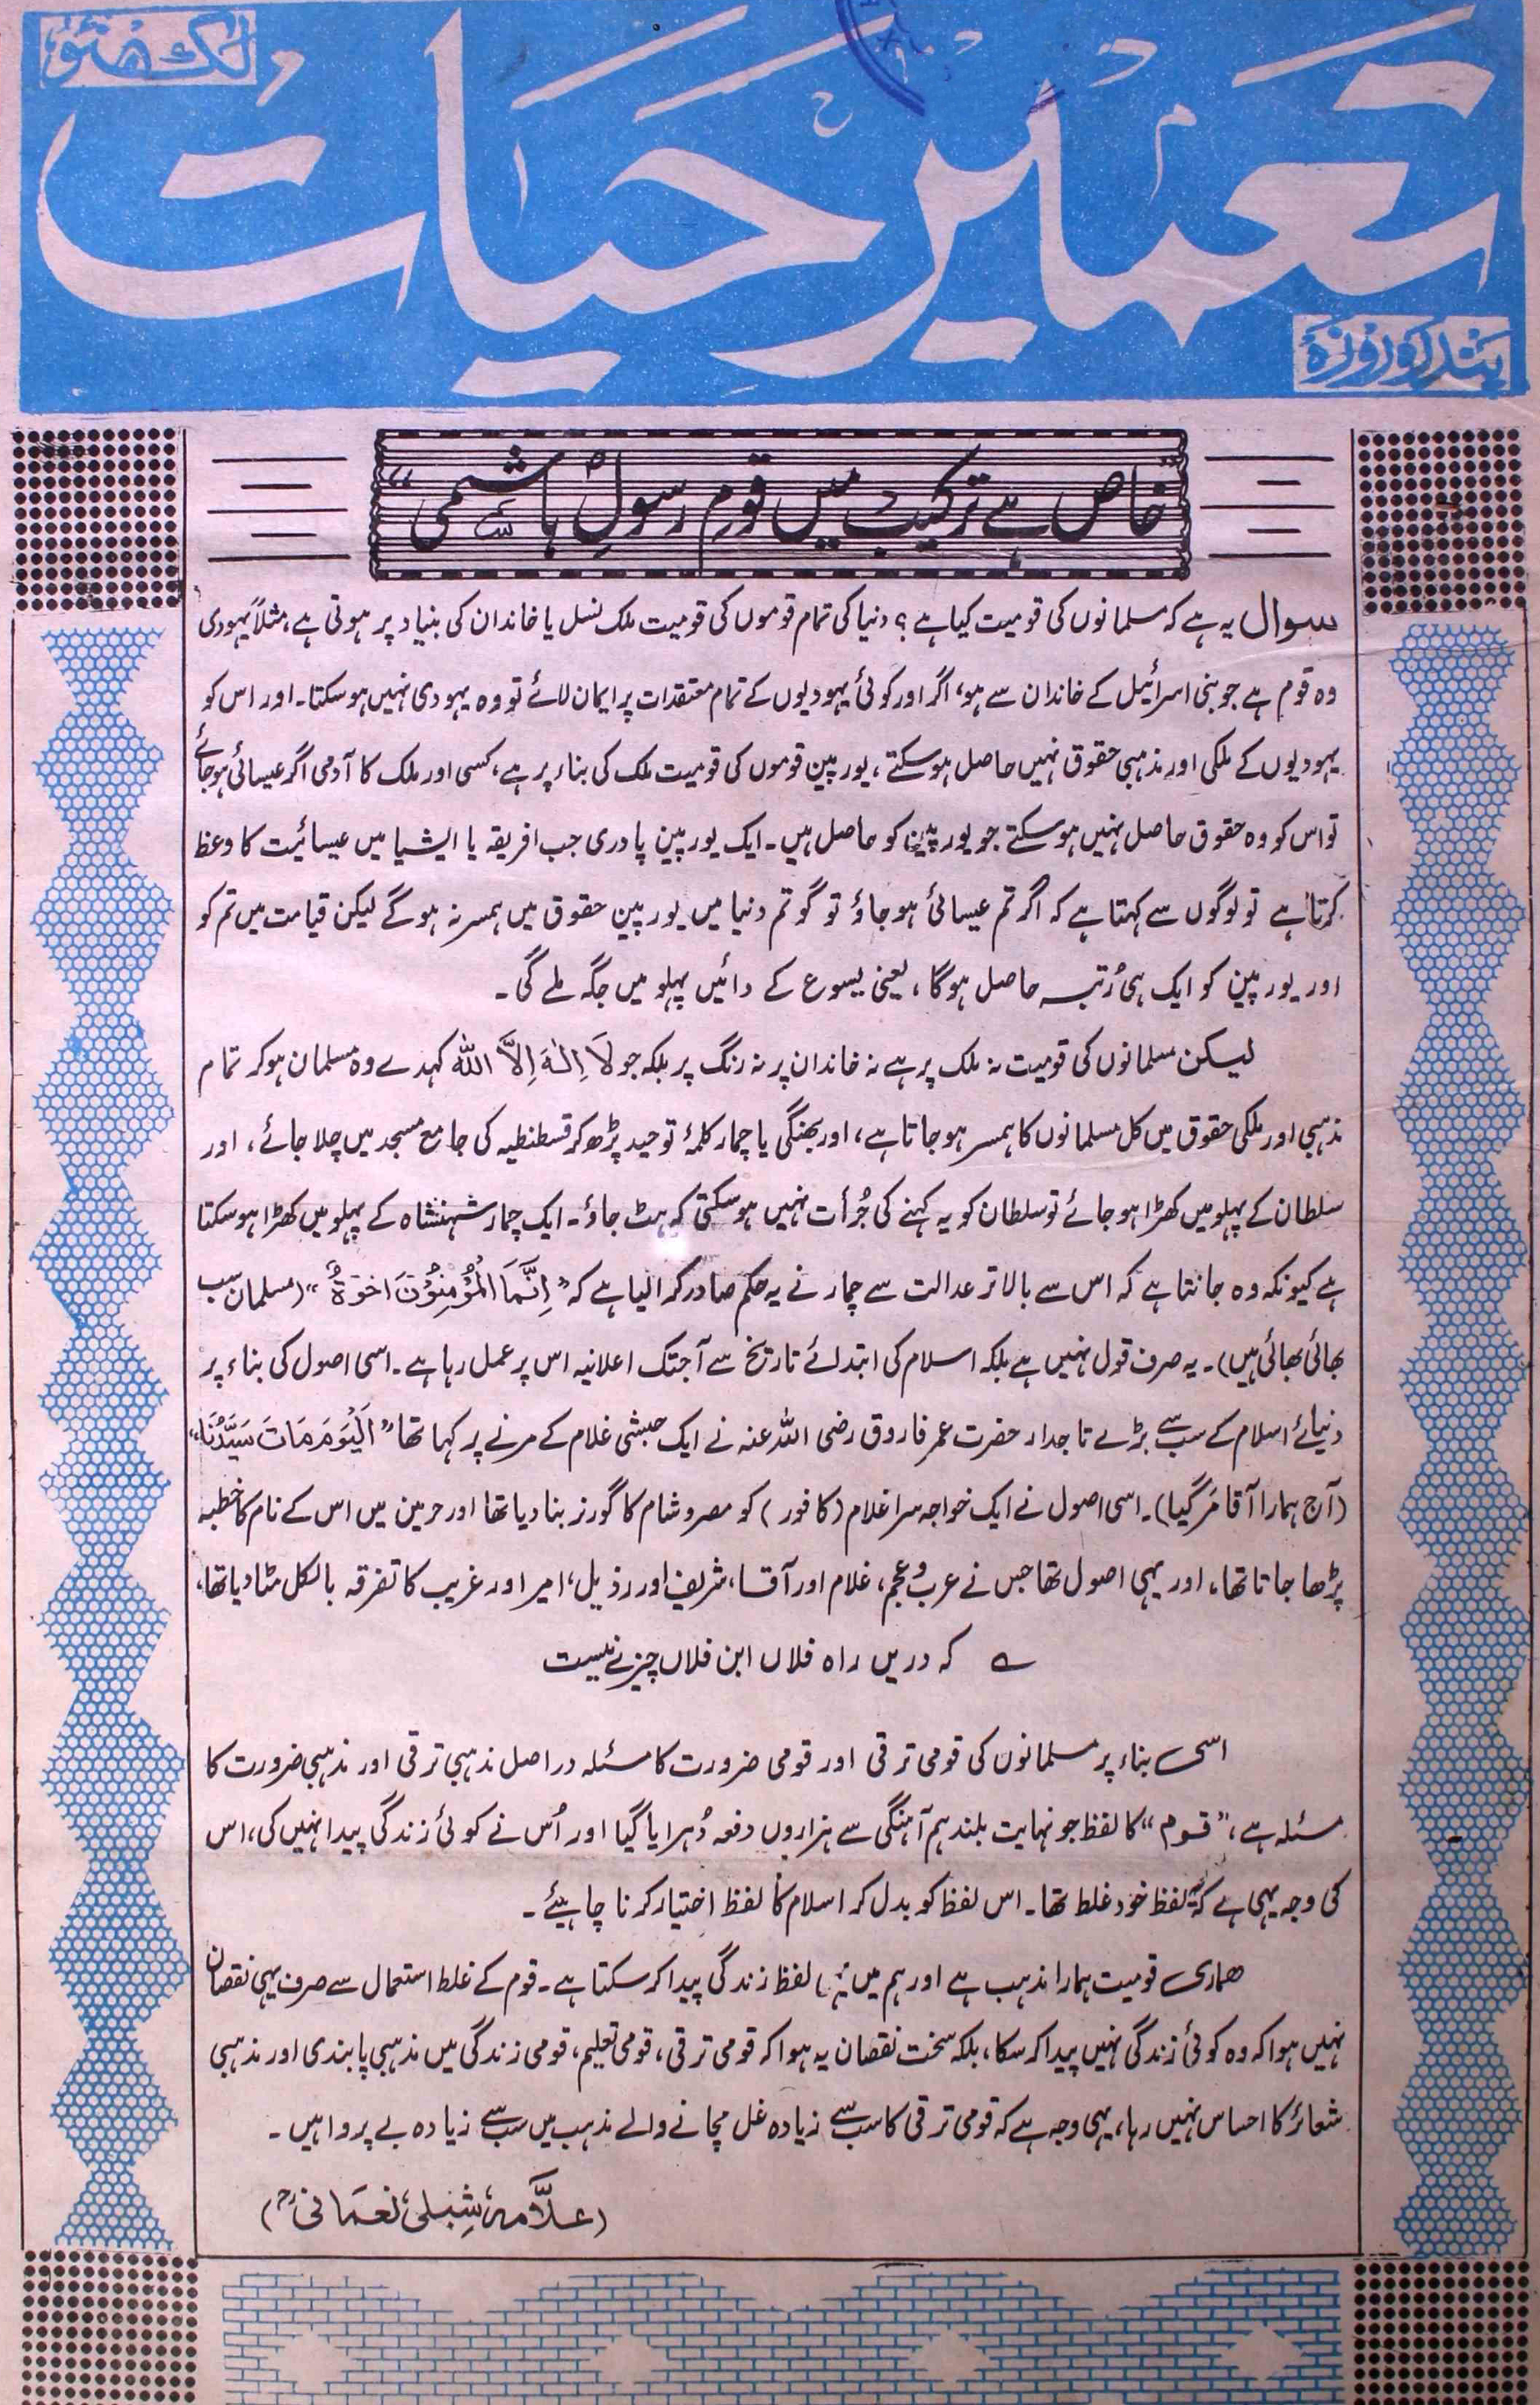 لکھنؤ
تعمیر حیات
پندرہ روزہ
"خاص ہے ترکیب میں قومِ رسولِ ہاشمی"
سوال یہ ہے کہ مسلمانوں کی قومیت کیا ہے؟ دنیا کی تمام قوموں کی قومیت ملک نسل یا خاندان کی بنیاد پر ہوتی ہے، مثلاً یہودی
وہ قوم ہے جو بنی اسرائیل کے خاندان سے ہو، اگر اور کوئی یہودیوں کے تمام معتقدات پر ایمان لائے تو وہ یہودی نہیں ہوسکتا۔ اور اس کو
یہودیوں کے ملکی اور مذہبی حقوق نہیں حاصل ہوسکتے، یورپین قوموں کی قومیت ملک کی بناء پر ہے، کسی اور ملک کا آدمی اگر عیسائی ہوجائے
تو اس کو وہ حقوق حاصل نہیں ہوسکتے جو یورپین کو حاصل ہیں۔ ایک یورپین پادری جب افریقہ یا ایشیا میں عیسائیت کا وعظ
کرتا ہے تو لوگوں سے کہتا ہے کہ اگر تم عیسائی ہوجاؤ تو گو تم دنیا میں یورپین حقوق میں ہمسر نہ ہوگے لیکن قیامت میں تم کو
اور یورپین کو ایک ہی رُتبہ حاصل ہوگا، یعنی یسوع کے دائیں پہلو میں جگہ ملے گی۔
لیکن مسلمانوں کی قومیت نہ ملک پر ہے نہ خاندان پر نہ رنگ پر بلکہ جو لَا اِلٰہَ اِلَّا اللّٰہ کہدے وہ مسلمان ہوکر تمام
مذہبی اور ملکی حقوق میں کل مسلمانوں کا ہمسر ہوجاتا ہے، اور بھنگی یا چمار کلمۂ توحید پڑھ کر قسطنطیہ کی جامع مسجد میں چلا جائے، اور
سلطان کے پہلو میں کھڑا ہوجائے تو سلطان کو یہ کہنے کی جُرأت نہیں ہوسکتی کہ ہٹ جاؤ۔ ایک چمار شہنشاہ کے پہلو میں کھڑا ہوسکتا
ہے کیونکہ وہ جانتا ہے کہ اس سے بالاتر عدالت سے چمار نے یہ حکم صادر کرالیا ہے کہ "اِنَّمَا الْمُؤْمِنُوْنَ اخوَۃٌ" (مسلمان سب
بھائی بھائی ہیں)۔ یہ صرف قول نہیں ہے بلکہ اسلام کی ابتدائے تاریخ سے آجتک اعلانیہ اس پر عمل رہا ہے۔ اسی اصول کی بناء پر
دنیائے اسلام کے سب سے بڑے تاجدار حضرت عمر فاروق رضی اللہ عنہ نے ایک حبشی غلام کے مرنے پر کہا تھا "اَلْیَوْمَ مَاتَ سَیِّدُنَا"
(آج ہمارا آقا مَر گیا)۔ اسی اصول نے ایک خواجہ سرا غلام (کافور) کو مصر و شام کا گورنر بنا دیا تھا اور حرمین میں اس کے نام کا خطبہ
پڑھا جاتا تھا، اور یہی اصول تھا جس نے عرب و عجم، غلام اور آقا، شریف اور رذیل، امیر اور غریب کا تفرقہ بالکل مٹا دیا تھا،
؎ کہ دریں راہ فلاں ابن فلاں چیزے نیست
اسی بناء پر مسلمانوں کی قومی ترقی اور قومی ضرورت کا مسئلہ دراصل مذہبی ترقی اور مذہبی ضرورت کا
مسئلہ ہے، "قوم" کا لفظ جو نہایت بلند ہم آہنگی سے ہزاروں دفعہ دُہرایا گیا اور اُس نے کوئی زندگی پیدا نہیں کی، اس
کی وجہ یہی ہے کہ یہ لفظ خود غلط تھا۔ اس لفظ کو بدل کر اسلام کا لفظ اختیار کرنا چاہیئے۔
ہماری قومیت ہمارا مذہب ہے اور ہم میں یہی لفظ زندگی پیدا کرسکتا ہے۔ قوم کے غلط استعمال سے صرف یہی نقصان
نہیں ہوا کہ وہ کوئی زندگی نہیں پیدا کرسکا، بلکہ سخت نقصان یہ ہوا کہ قومی ترقی، قومی تعلیم، قومی زندگی میں مذہبی پابندی اور مذہبی
شعائر کا احساس نہیں رہا، یہی وجہ ہے کہ قومی ترقی کا سب سے زیادہ غل مچانے والے مذہب میں سب سے زیادہ بے پروا ہیں۔
(علاّمہ شبلی نعمانیؒ)